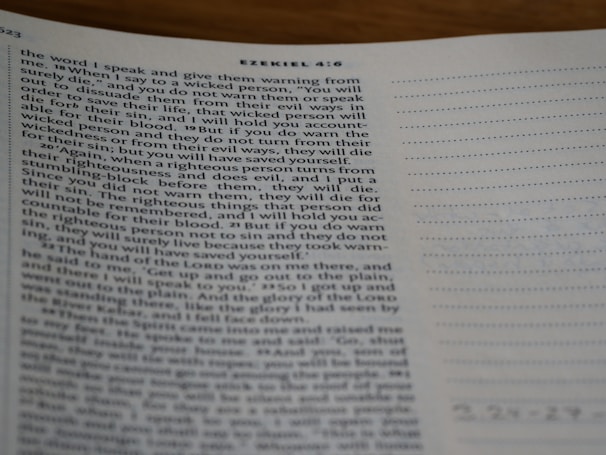 523
EZEKIEL 4:6
the word I speak and give them warning from
me. 18 When I say to a wicked person, "You will
surely die," and you do not warn them or speak
out to dissuade them from their evil ways in
order to save their life, that wicked person will
die for b their sin, and I will hold you account-
able for their blood. 19 But if you do warn the
wicked person and they do not turn from their
wickedness or from their evil ways, they will die
for their sin; but you will have saved yourself.
20 'Again, when a righteous person turns from
their righteousness and does evil, and I put a
stumbling-block before them, they will die.
Since you did not warn them, they will die for
their sin. The righteous things that person did
will not be remembered, and I will hold you ac-
countable for their blood. 21 But if you do warn
the righteous person not to sin and they do not
sin, they will surely live because they took warn-
ing, and you will have saved yourself.'
22 The hand of the LORD was on me there, and
he said to me, 'Get up and go out to the plain,
and there I will speak to you.' 23 So I got up and
went out to the plain. And the glory of the LORD
was standing there, like the glory I had seen by
the River Kebar, and I fell face down.
24 Then the Spirit came into me and raised me
to my feet. He spoke to me and said: 'Go, shut
yourself inside your house. 25 And you, son of
man, they will tie with ropes; you will be bound
so that you cannot go out among the people. 26 I
will make your tongue stick to the roof of your
mouth so that you will be silent and unable to
rebuke them, for they are a rebellious people.
27 But when I speak to you, I will open your
mouth and you shall say to them, "This is what
2 24-27